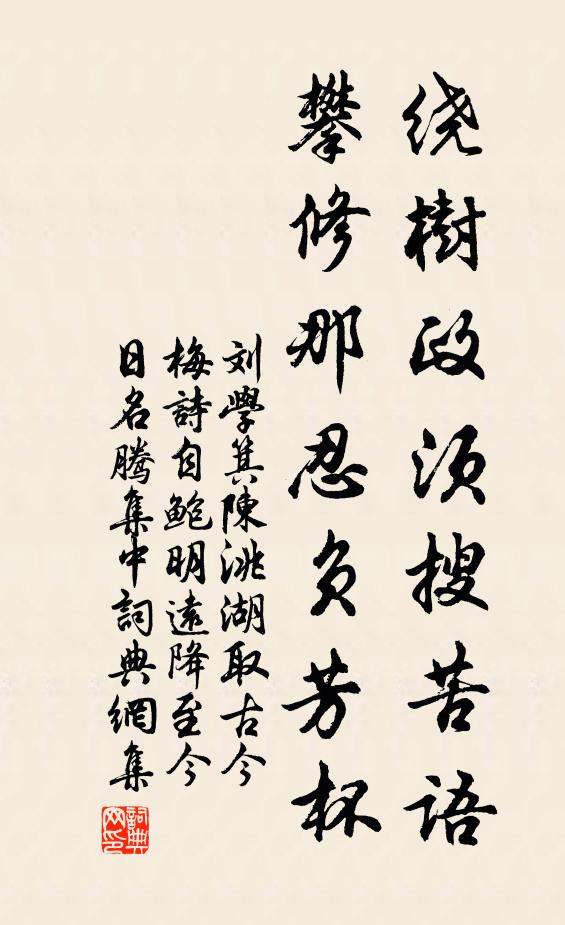 绕樹政须搜苦语
攀修那忍负芳杯
刘學箕陳洮湖取古今
梅詩自鲍明遠降至今
日名腾集中詞典網集
詞典網印